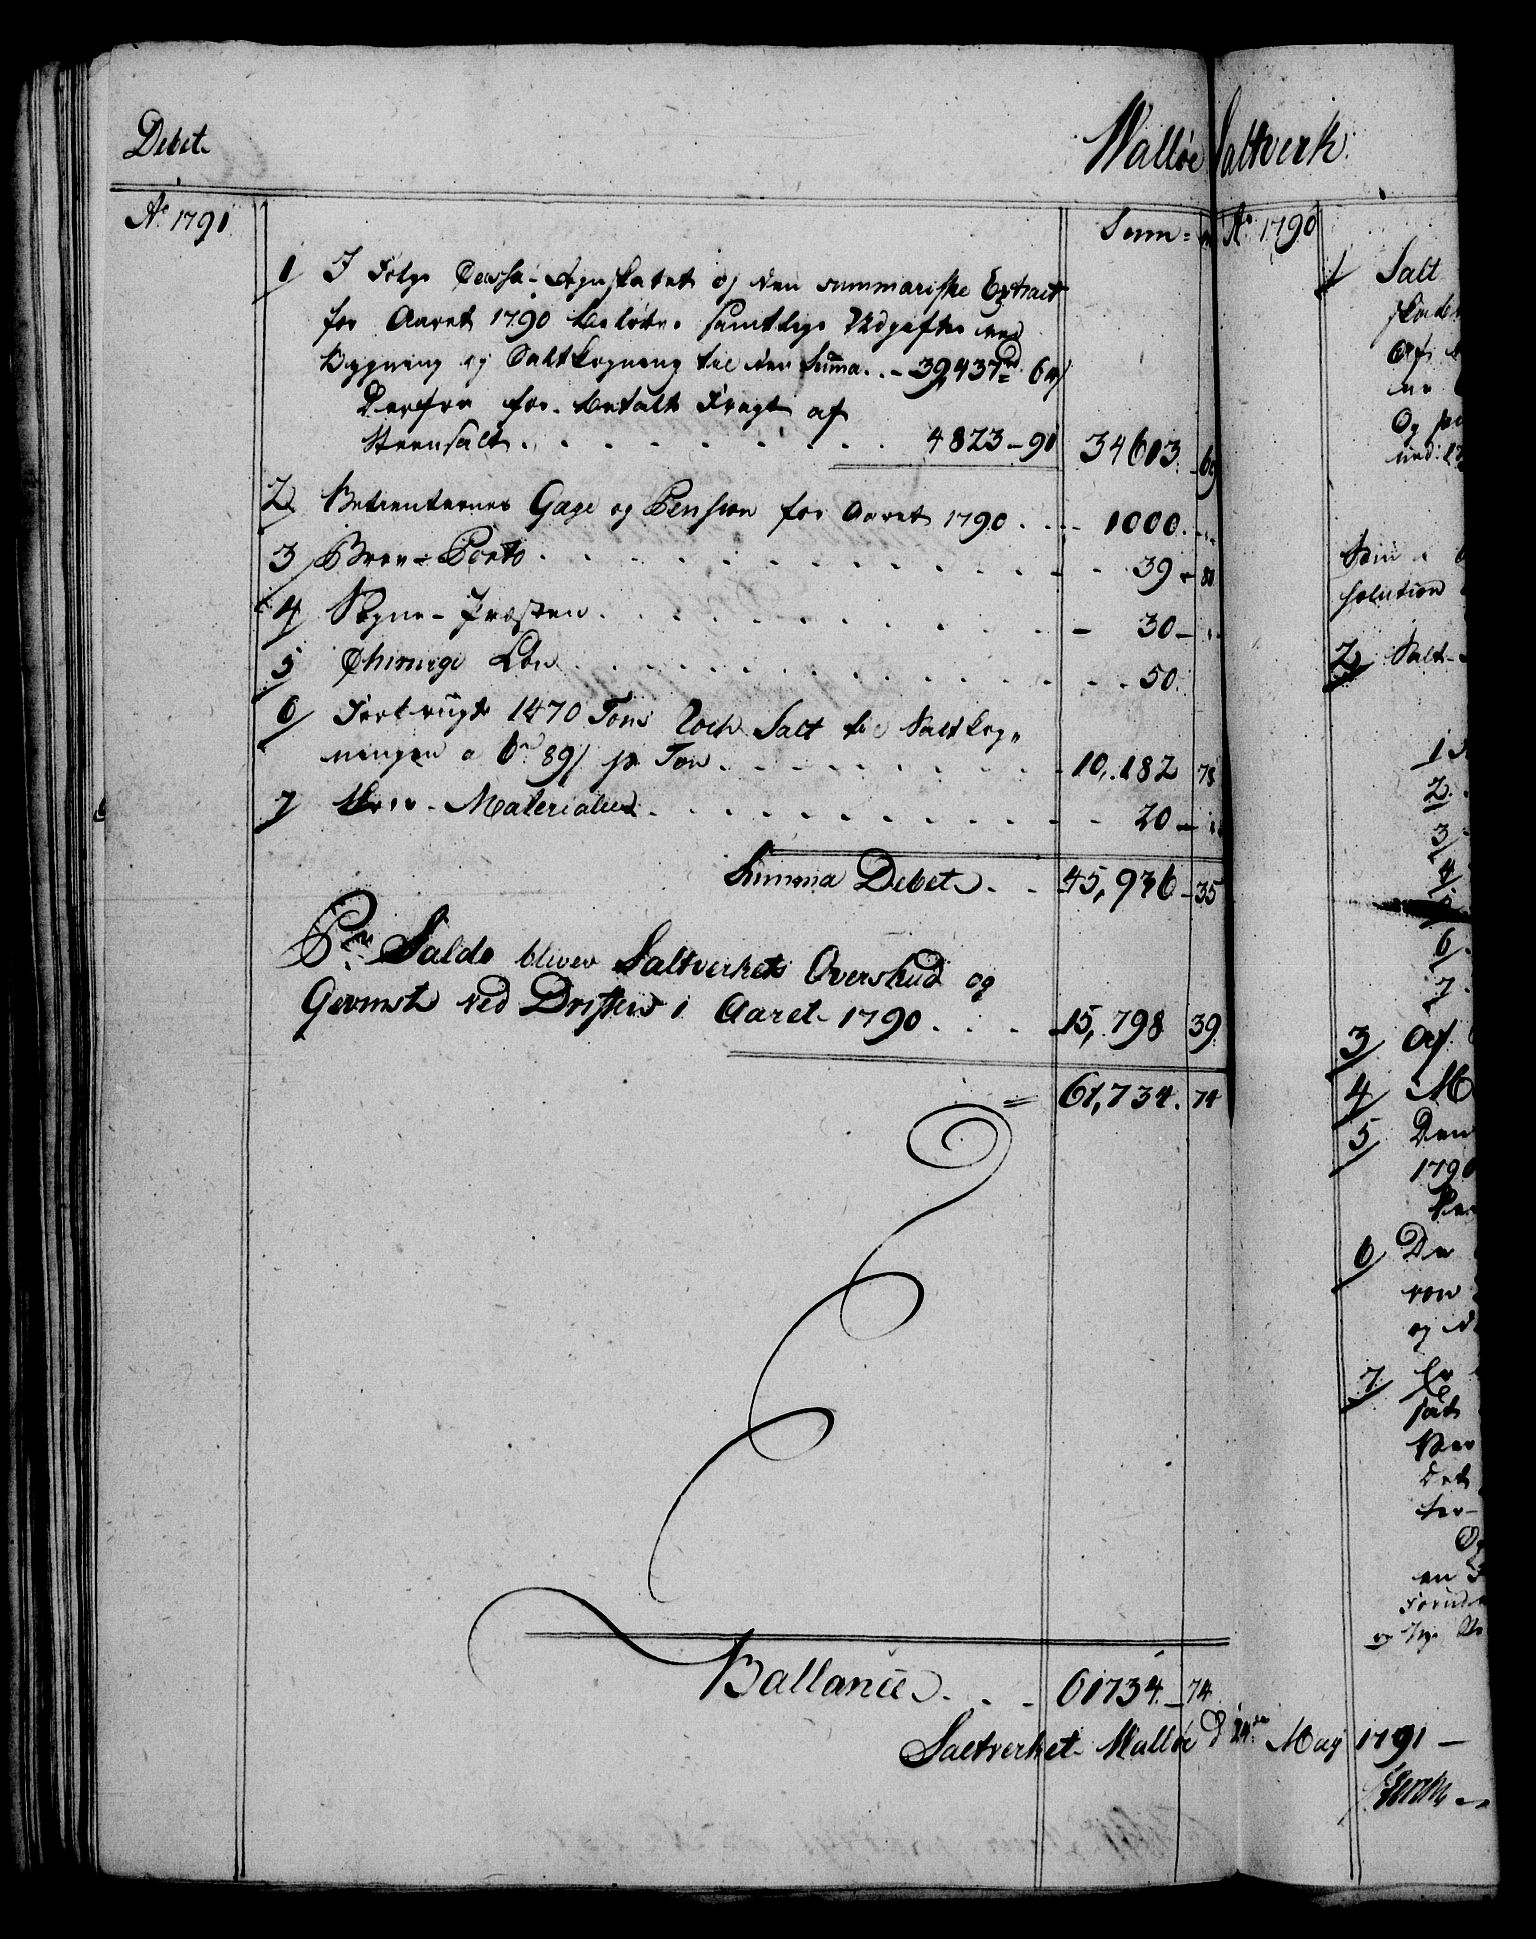 Debet
Walløe Saltverk.
Ao 1791
Summa
Ao 1790
1 I Følge Cassa-Regnskabet og den summariske Extract
for Aaret 1790 beløber samtlige Udgifter ved
Bygning og Saltkogning til den Summa . . 39,437rd 6
Derfra for betalt Fragt af
Steensalt . . . . . . . . . 4823 - 90 34613. 60
2 Betienternes Gage og Pension for Aaret 1790 . . 1000. -
3 Brev-Porto . . . . . . . . . 39 - 80
4 Sogne-Præsten . . . . . . . . . 30 -
5 Chirurgi Løn . . . . . . . . . 50.
6 Forbrugte 1470 Tons Roch Salt til Saltkog-
ningen a 6rd 89 pr Ton . . . . . . . . 10,182 78
7 Skriv-Materialier . . . . . . . . . 20 -
Summa Debet . . 45,936 - 35
Pr Saldo bliver Saltverkets Overskud og
Gevinst ved Driften i Aaret 1790 . . . 15,798 39.
= 61,734. 74
Ballance . . . 61734. - 74
Saltverket Walløe d 24de May 1791 -
1 Salt
Og
solution
2 Salt-
1
2.
3
4
6
7
3 Af
4 M
5 Den
1790
6 De
og
7
Det